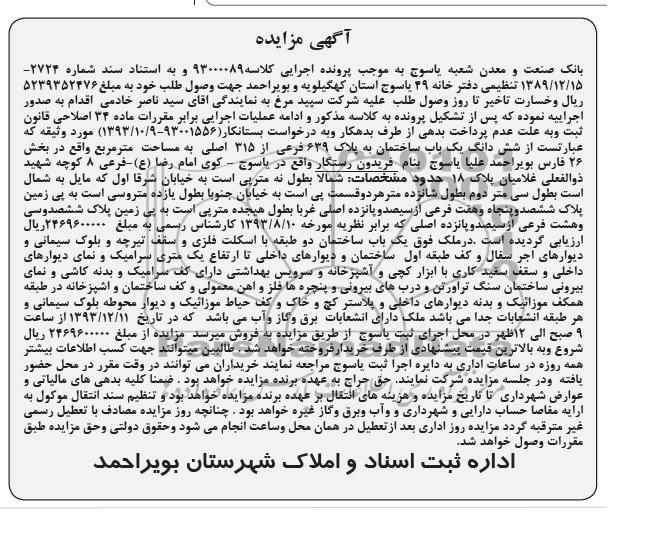 آگهی مزایده
بانک صنعت و معدن شعبه یاسوج به موجب پرونده اجرایی کلاسه۹۳۰۰۰۰۸۹ و به استناد سند شماره ۲۷۲۴-
۱۳۸۹/۱۲/۱۵ تنظیمی دفتر خانه ۴۹ یاسوج استان کهگیلویه و بویراحمد جهت وصول طلب خود به مبلغ۵۲۳۹۳۵۲۴۷۶
ریال وخسارت تاخیر تا روز وصول طلب علیه شرکت سپید مرغ به نمایندگی اقای سید ناصر خادمی اقدام به صدور
اجراییه نموده که پس از تشکیل پرونده به کلاسه مذکور و ادامه عملیات اجرایی برابر مقررات ماده ۳۴ اصلاحی قانون
ثبت وبه علت عدم پرداخت بدهی از طرف بدهکار وبه درخواست بستانکار(۹۳۰۰۱۵۵۶-۱۳۹۳/۱۰/۹) مورد وثیقه که
عبارتست از شش دانگ یک باب ساختمان به پلاک ۶۳۹ فرعی از ۳۱۵ اصلی به مساحت مترمربع واقع در بخش
۲۶ فارس بویراحمد علیا یاسوج پناه فریدون رستکار واقع در یاسوج - کوی امام رضا (ع)-فرعی ۸ کوچه شهید
ذوالفعلی غلامیان پلاک ۱۸ حدود مشخصات: شمالا بطول نه مترپی است به خیابان شرقا اول که مایل به شمال
است بطول سی متر دوم بطول شانزده مترهردوقسمت پی است به خیابان جنوبا بطول یازده متروسی است به پی زمین
پلاک ششصدوپنجاه وهفت فرعی ازسیصدوپانزده اصلی غربا بطول هیجده مترپی است به پی زمین پلاک ششصدوسی
وهشت فرعی ازسیصدوپانزده اصلی که برابر نظریه مورخه ۱۳۹۳/۸/۱۰ کارشناس رسمی به مبلغ ۲۴۶۹۶۰۰۰۰۰ریال
ارزیابی گردیده است .درملک فوق یک باب ساختمان دو طبقه با اسکلت فلزی و سقف تیرچه و بلوک سیمانی و
دیوارهای اجر سفال و کف طبقه اول ساختمان و دیوارهای داخلی تا ارتفاع یک متری سرامیک و نمای دیوارهای
داخلی و سقف سفید کاری با ابزار کچی و آشپزخانه و سرویس بهداشتی دارای کف سرامیک و بدنه کاشی و نمای
بیرونی ساختمان سنگ تراورتن و درب های بیرونی و پنجره ها فلز و اهن معمولی و کف ساختمان و اشپزخانه در طبقه
همکف موزائیک و بدنه دیوارهای داخلی و پلاستر کچ و خاک و کف حیاط موزائیک و دیوار محوطه بلوک سیمانی و
هر طبقه انشعابات جدا می باشد ملک دارای انشعابات برق وگاز و آب می باشد که در تاریخ ۱۳۹۳/۱۲/۱۱ از ساعت
۹ صبح الی ۱۲ظهر در محل اجرای ثبت یاسوج از طریق مزایده به فروش میرسد مزایده از مبلغ ۲۴۶۹۶۰۰۰۰۰ ریال
شروع وبه بالاترین قیمت پیشنهادی از طرف خریدارفروخته خواهد شد . طالبین میتوانند جهت کسب اطلاعات بیشتر
همه روزه در ساعات اداری به دایره اجرا ثبت یاسوج مراجعه نمایند خریداران می توانند در وقت مقرر در محل حضور
یافته ودر جلسه مزایده شرکت نمایند. حق حراج به عهده برنده مزایده خواهد بود . ضمنا کلیه بدهی های مالیاتی و
عوارض شهرداری تا تاریخ مزایده و هزینه های انتقال بر عهده برنده مزایده خواهد بود و تنظیم سند انتقال موکول به
ارایه مفاصا حساب دارایی و شهرداری و وآب وبرق وگاز غیره خواهد بود . چنانچه روز مزایده مصادف با تعطیل رسمی
غیر مترقبه گردد مزایده روز اداری بعد ازتعطیل در همان محل وساعت انجام می شود وحقوق دولتی وحق مزایده طبق
مقررات وصول خواهد شد.
اداره ثبت اسناد و املاک شهرستان بویراحمد